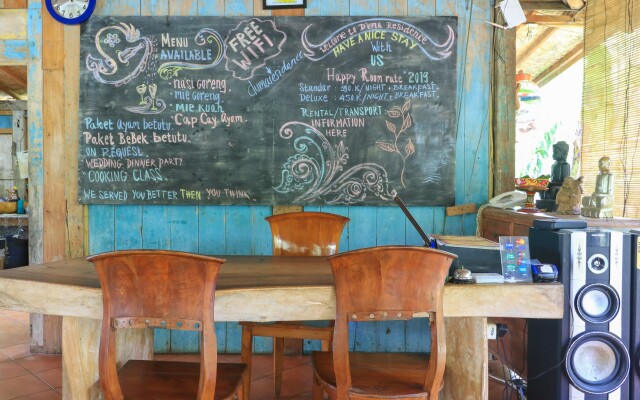 HAVE A
NICE TIME
MENU
AVAILABLE
nasi goreng
mie goreng
MIE KUAH
Cap Cay Ayam.
Paket Ayam betutu
Paket BeBek betutu.
ON REQUEST
WEDDING DINNER PARTY
COOKING CLASS.
WE SERVED YOU BETTER THEN YOU THINK
FREE
WIFI
Welcome to D'Ema Residence
HAVE A NICE STAY
With
US
Happy Room rate 2019
Standar : 350 K/NIGHT + BREAKFAST
Deluxe : 450 K/NIGHT + BREAKFAST
RENTAL/TRANSPORT
INFORMATION
HERE